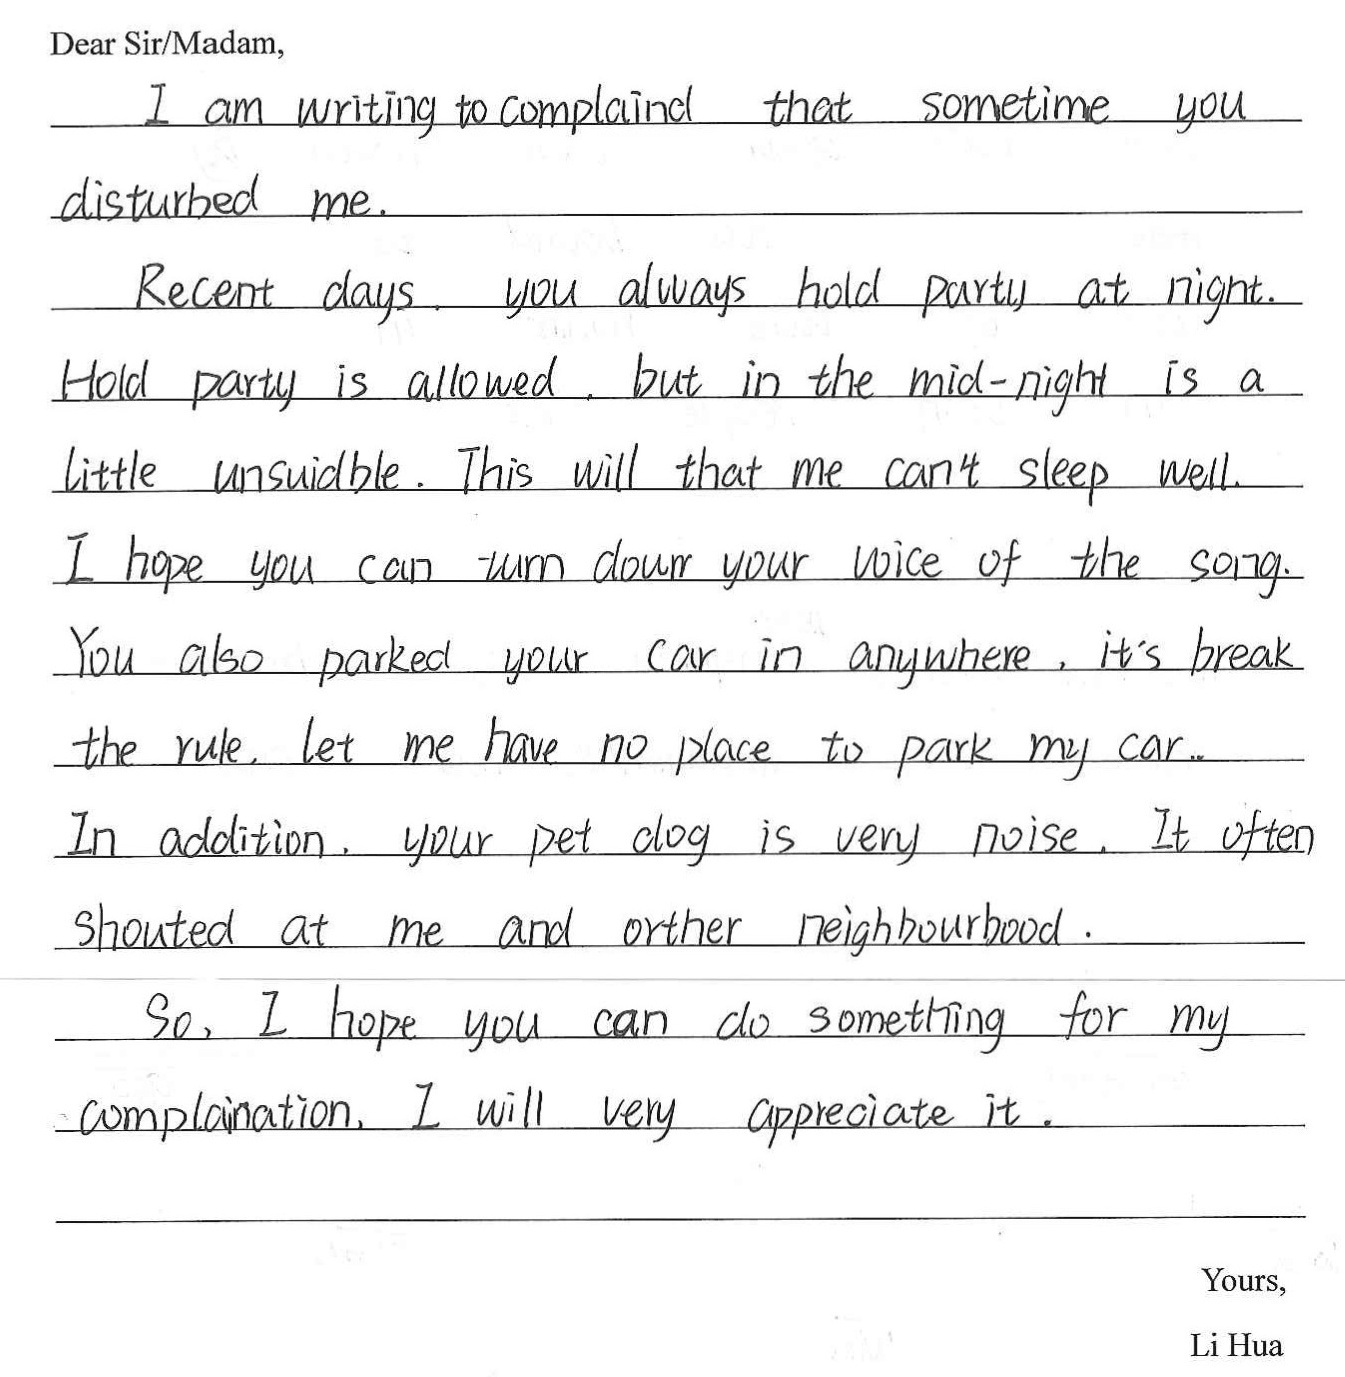 Dear Sir/Madam,
I am writing to complaind that sometime you
disturbed me.
Recent days, you always hold party at night.
Hold party is allowed, but in the mid-night is a
little unsuidble. This will that me can't sleep well.
I hope you can turn down your voice of the song.
You also parked your car in anywhere, it's break
the rule, let me have no place to park my car..
In addition, your pet dog is very noise. It often
shouted at me and orther neighbourbood.
So, I hope you can do something for my
complaination. I will very appreciate it.
Yours,
Li Hua